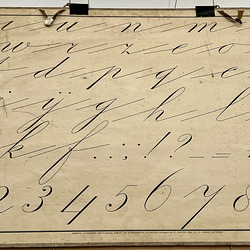 u n m
w r z e o
t d p q c
y g h l
k f . , ; ! ? — =
2 3 4 5 6 7 8